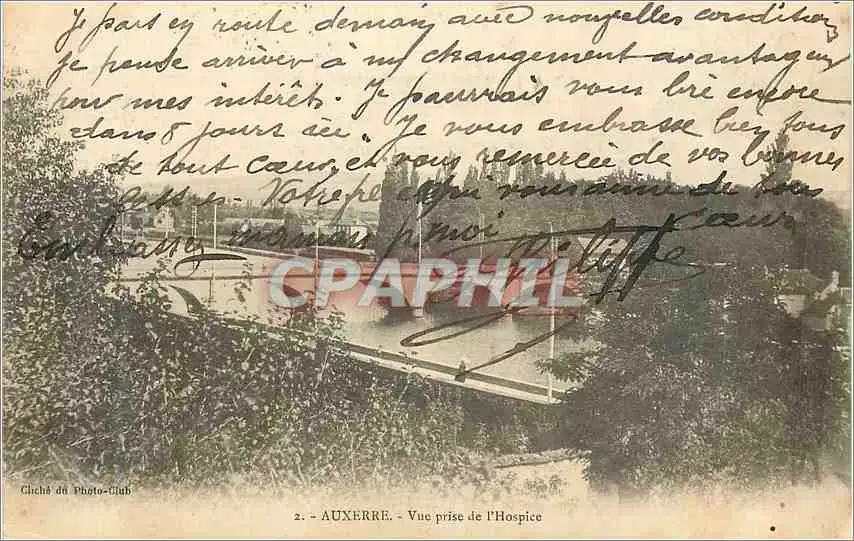 Je pars en route demain avec nouvelles conditions
Je pense arriver à un changement avantageux
pour mes intérêts. Je pourrais vous lire encore
dans 8 jours ici. Je vous embrasse bien tous
de tout cœur et vous remercie de vos bonnes
lettres. Votre père qui vous aime de tout cœur
Embrassez maman pour moi Philippe
CPAPHIL
Cliché du Photo-Club
2. - AUXERRE. - Vue prise de l'Hospice